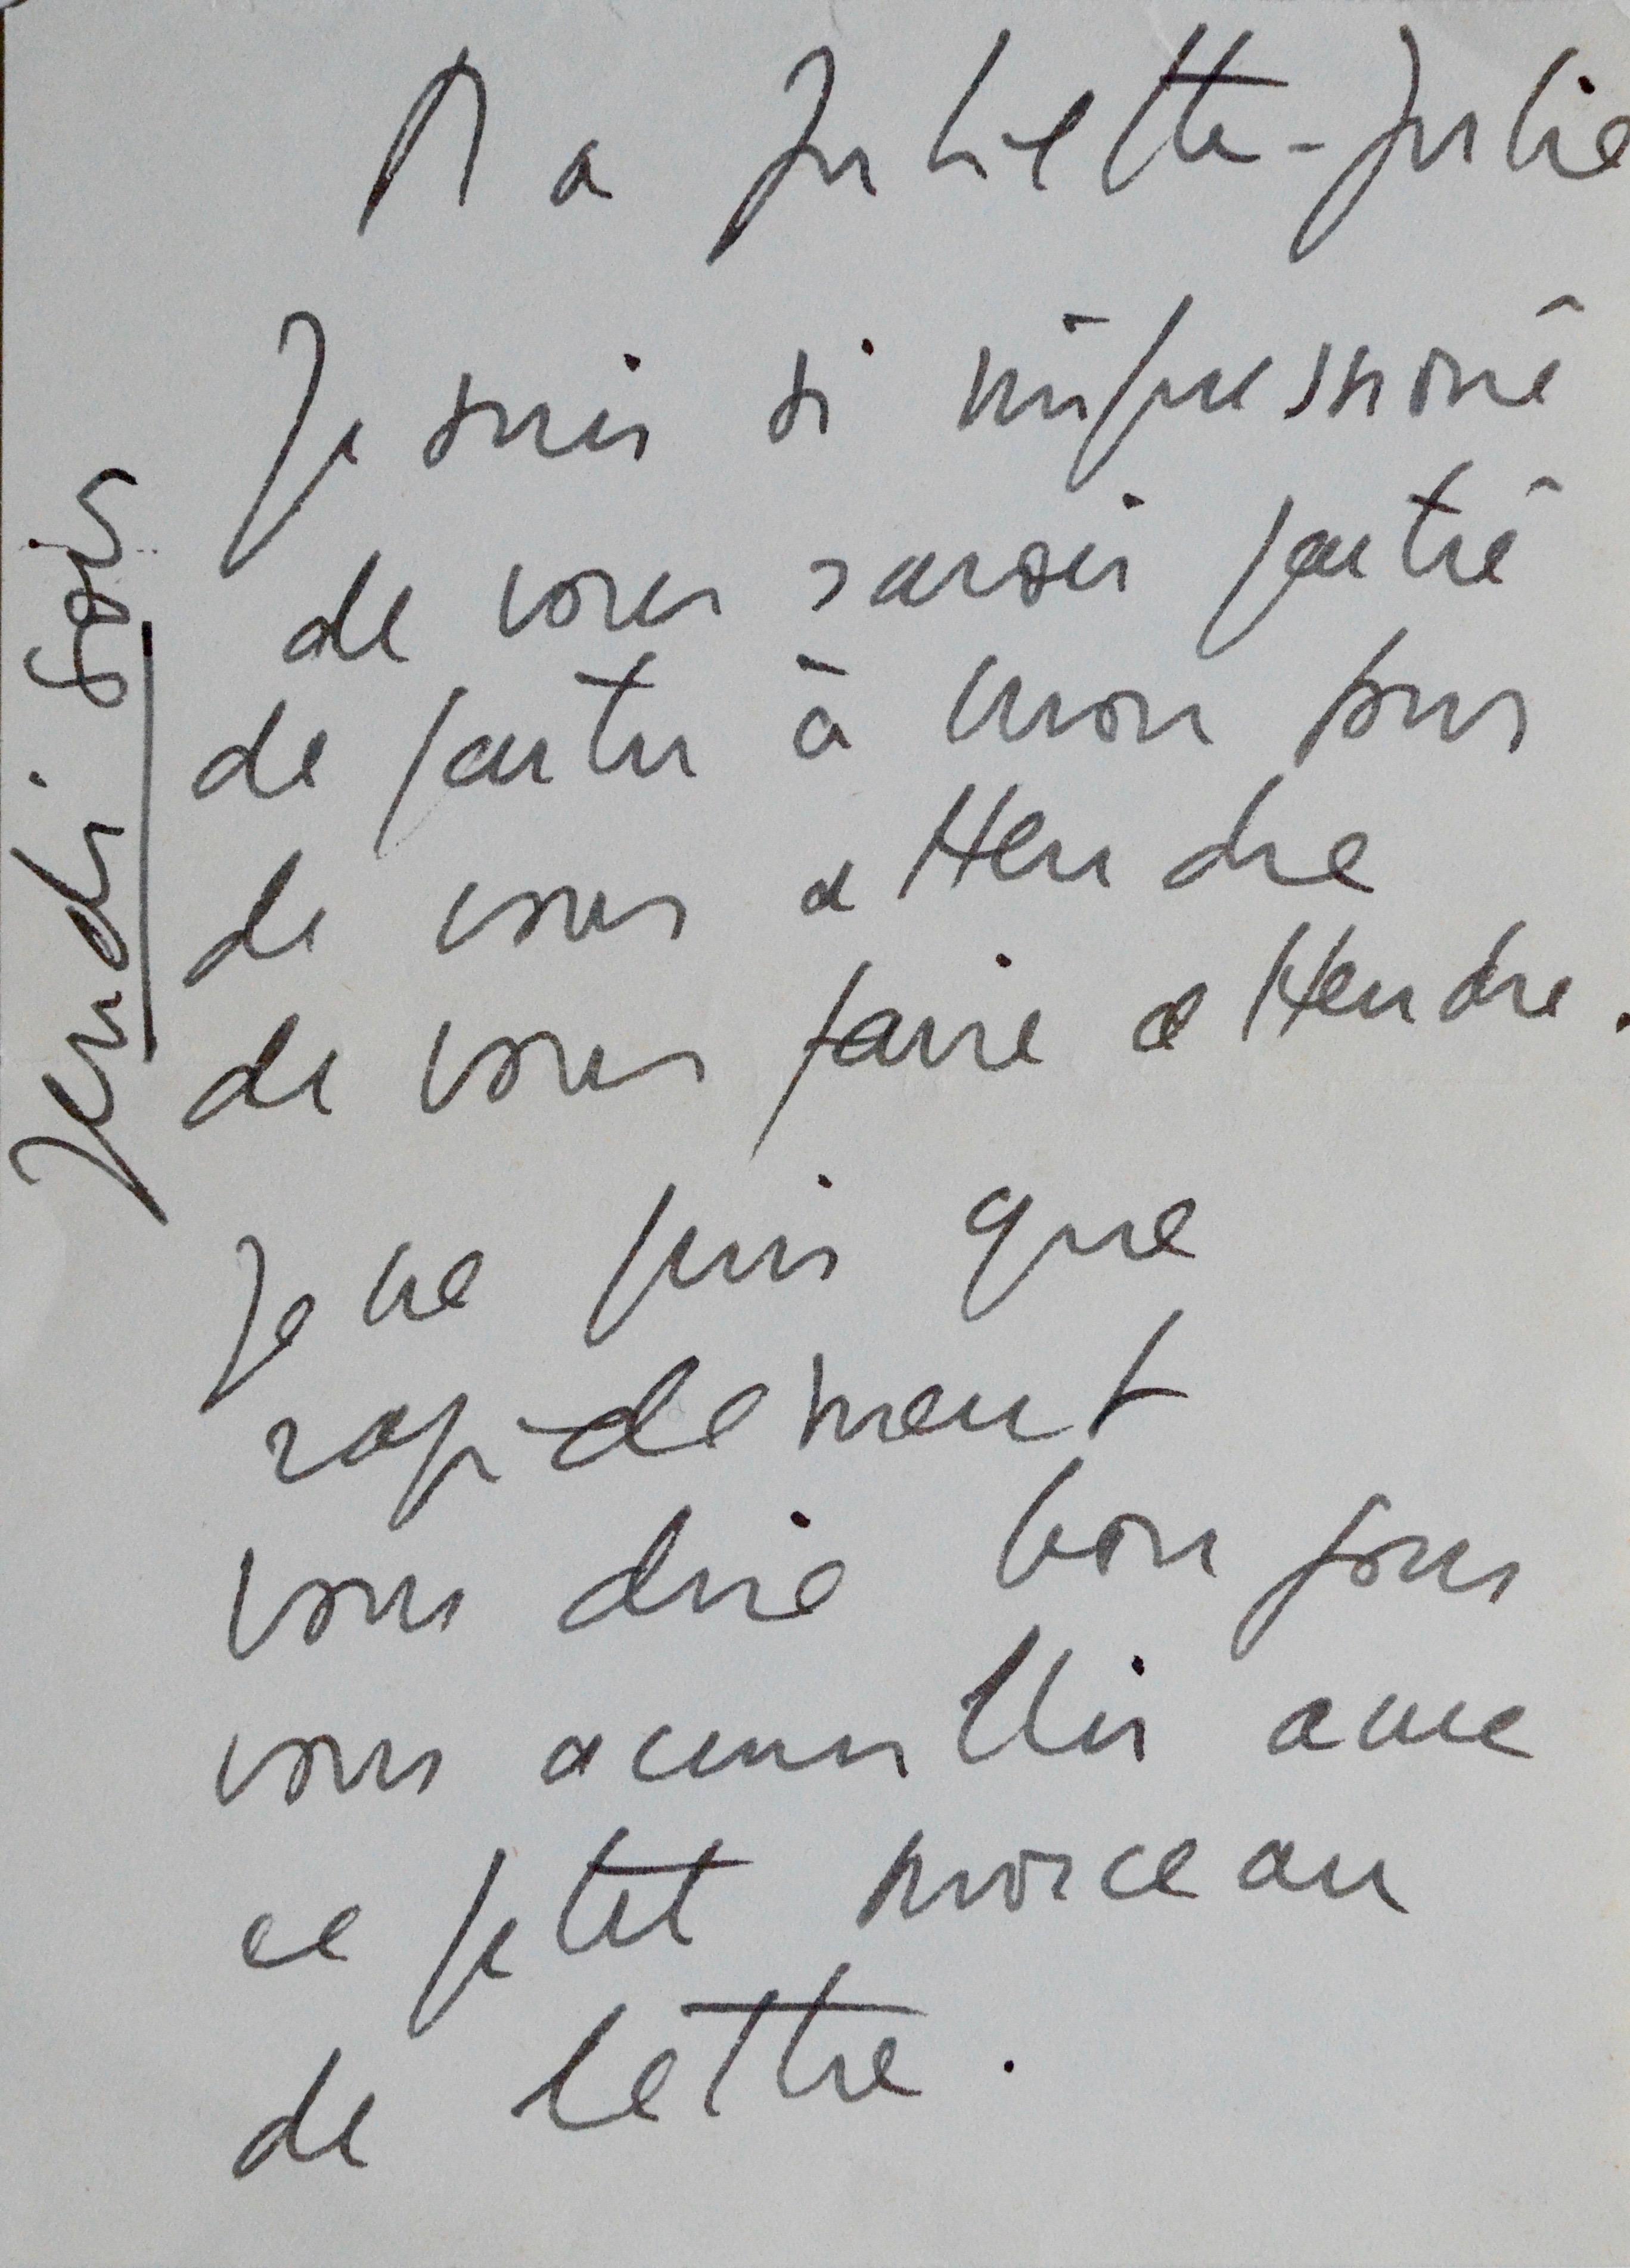 Jeudi soir
Ma Juliette-Julie
Je suis si impressioné
de vous savoir partie
de partir à mon tour
de vous attendre
de vous faire attendre.
Je ne puis que
rapidement
vous dire bonjour
vous accueillir avec
ce petit morceau
de lettre.